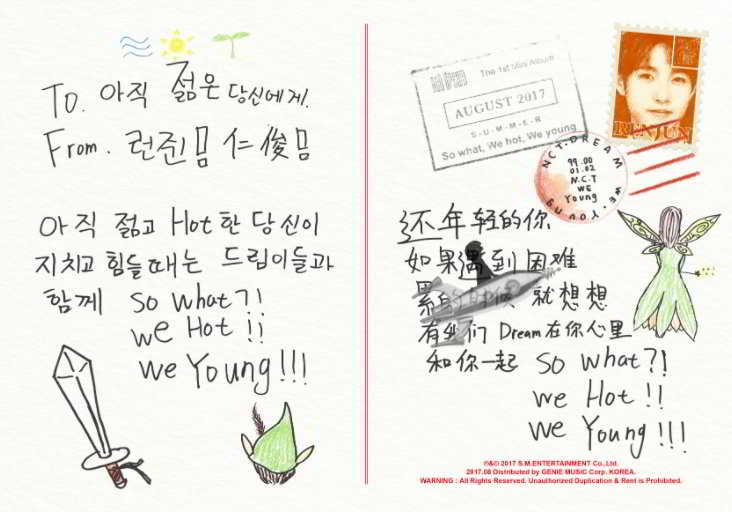 To. 아직 젊은 당신에게.
From. 런쥔 仁俊
아직 젊고 Hot한 당신이
지치고 힘들 때는 드림이들과
함께 so what?!
we Hot !!
we Young !!!
The 1st Mini Album
AUGUST 2017
S-U-M-M-E-R
So what, We hot, We young
RENJUN
NCT·DREAM WE·YOUNG
99.00
01.02
N.C.T
WE
Young
还年轻的你
如果遇到困难
累的时候 就想想
有我们 Dream在你心里
和你一起 so what?!
we Hot !!
we Young !!!
℗&© 2017 S.M.ENTERTAINMENT Co.,Ltd.
2017.08 Distributed by GENIE MUSIC Corp. KOREA.
WARNING : All Rights Reserved. Unauthorized Duplication & Rent is Prohibited.